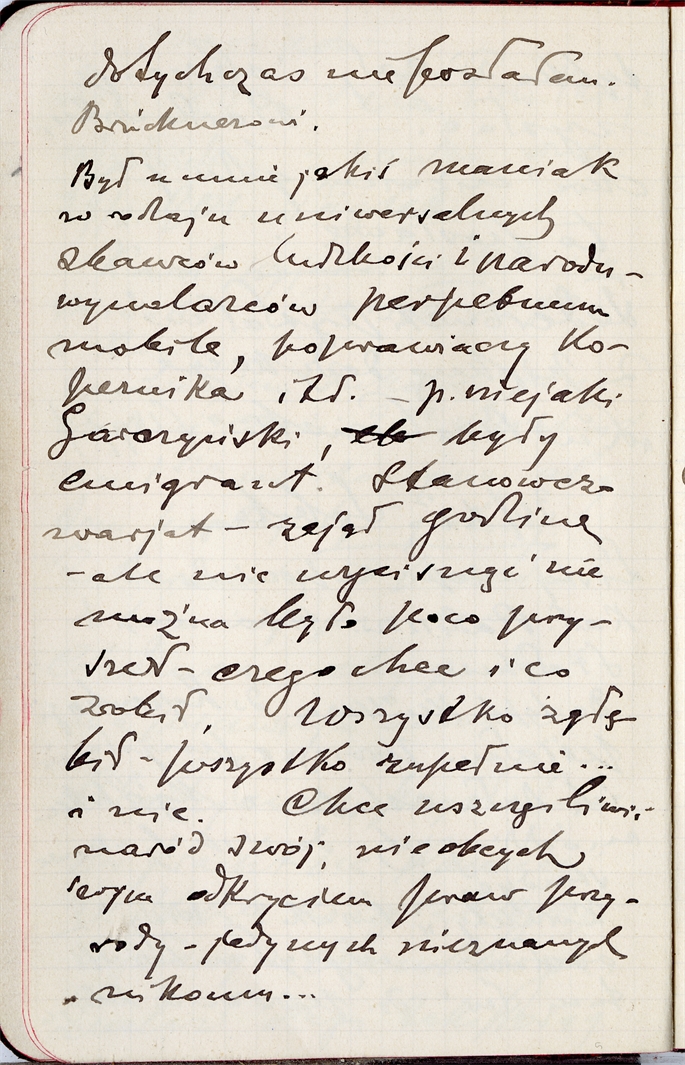 dotychczas nie posłałem.
Brücknerowi.
Był u mnie jakiś maniak
w rodzaju uniwersalnych
zbawców ludzkości i narodu –
wynalazców perpetuum
mobile, poprawiaczy Ko-
pernika itd. – p. niejaki
Garczyński, były
emigrant. Stanowczo
warjat – zajął godzinę
– ale nic wycisnąć nie
można było poco przy-
szedł – czego chce i co
zrobił. Wszystko zgłę-
bił – wszystko zupełnie...
i nic. Chce uszczęśliwić
naród swój, nie obcych
swym odkryciem praw przy-
rody – jedynych nieznanych
nikomu...